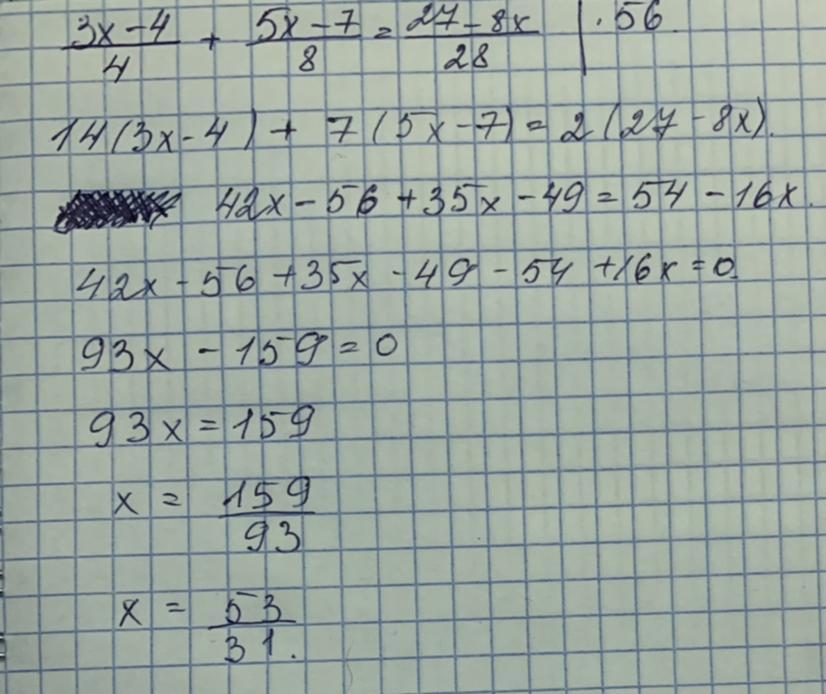 (3x-4)/4 + (5x-7)/8 = (27-8x)/28 | · 56
14(3x-4) + 7(5x-7) = 2(27-8x).
42x - 56 + 35x - 49 = 54 - 16x.
42x - 56 + 35x - 49 - 54 + 16x = 0
93x - 159 = 0
93x = 159
x = 159/93
x = 53/31.